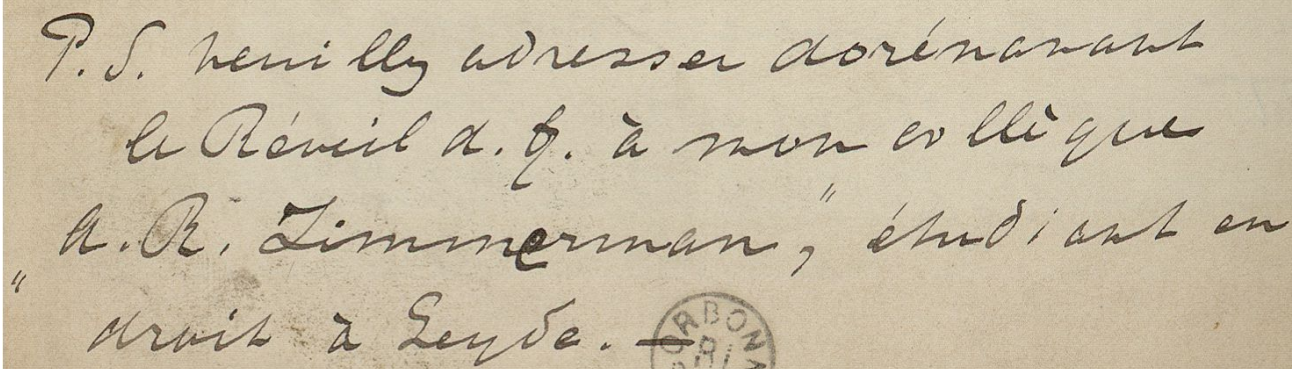 P. S. veuilly adresser dorénavant
le Réveil d. q. à mon collègue
A. R. Zimmerman," étudiant en
" droit à Leyde. —
ORBONA